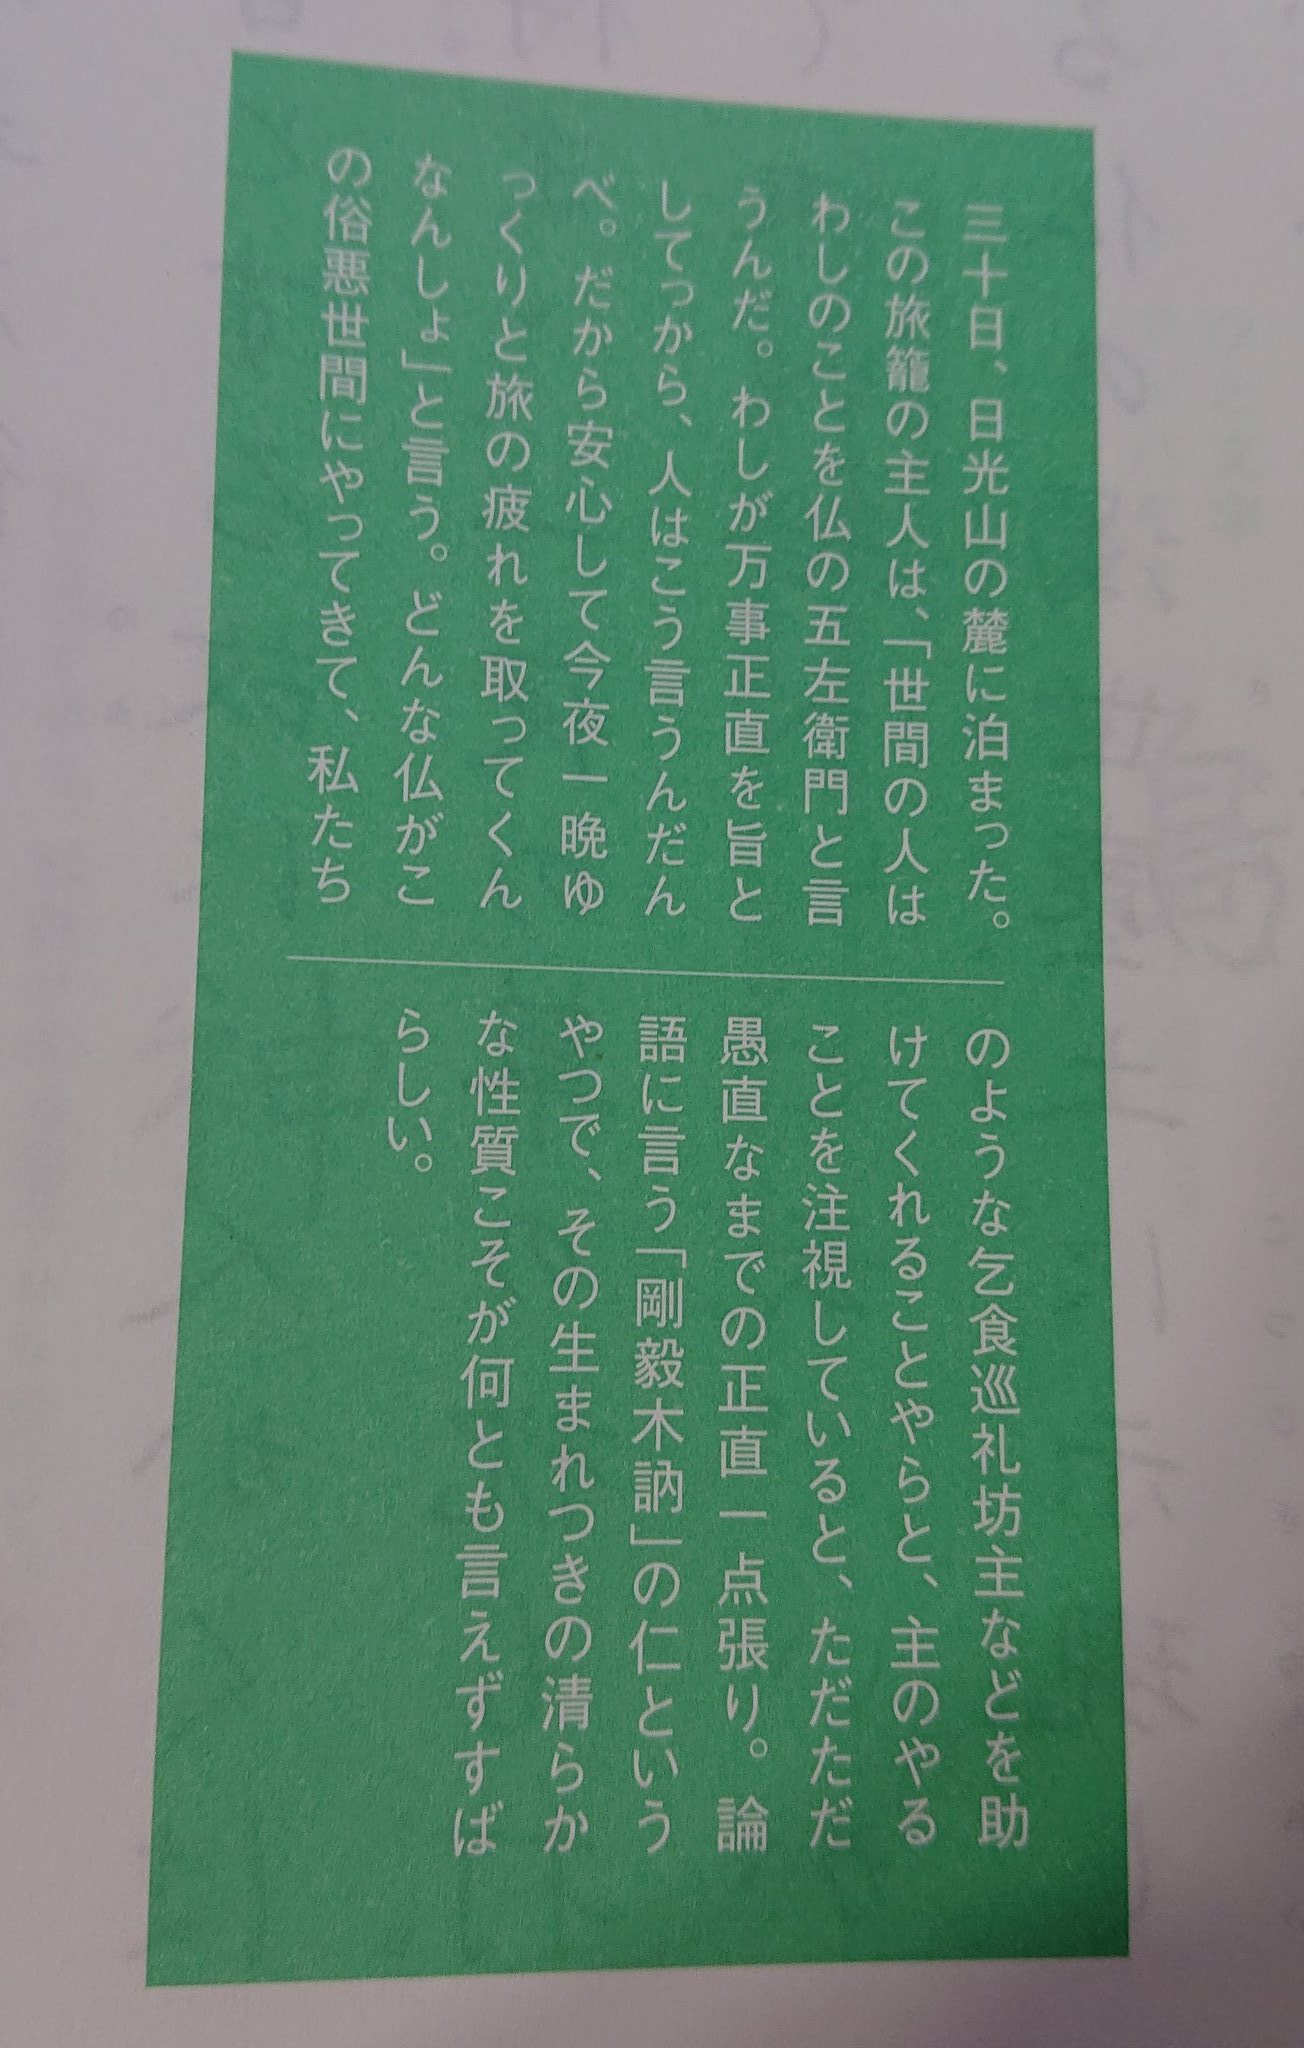 三十日、日光山の麓に泊まった。
この旅籠の主人は、「世間の人は
わしのことを仏の五左衛門と言
うんだ。わしが万事正直を旨と
してっから、人はこう言うんだん
べ。だから安心して今夜一晩ゆ
っくりと旅の疲れを取ってくん
なんしょ」と言う。どんな仏がこ
の俗悪世間にやってきて、私たち
のような乞食巡礼坊主などを助
けてくれることやらと、主のやる
ことを注視していると、ただただ
愚直なまでの正直一点張り。論
語に言う「剛毅木訥」の仁という
やつで、その生まれつきの清らか
な性質こそが何とも言えずすば
らしい。